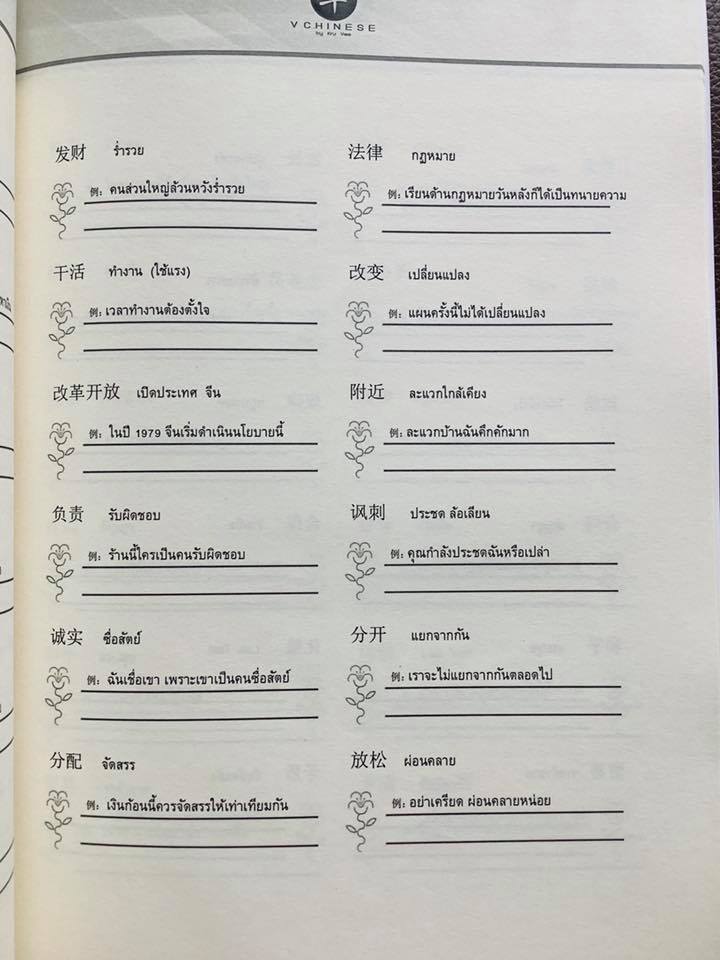 V CHINESE
by Kru Vee
发财 ร่ำรวย
例: คนส่วนใหญ่ล้วนหวังร่ำรวย
干活 ทำงาน (ใช้แรง)
例: เวลาทำงานต้องตั้งใจ
改革开放 เปิดประเทศ จีน
例: ในปี 1979 จีนเริ่มดำเนินนโยบายนี้
负责 รับผิดชอบ
例: ร้านนี้ใครเป็นคนรับผิดชอบ
诚实 ซื่อสัตย์
例: ฉันเชื่อเขา เพราะเขาเป็นคนซื่อสัตย์
分配 จัดสรร
例: เงินก้อนนี้ควรจัดสรรให้เท่าเทียมกัน
法律 กฎหมาย
例: เรียนด้านกฎหมายวันหลังก็ได้เป็นทนายความ
改变 เปลี่ยนแปลง
例: แผนครั้งนี้ไม่ได้เปลี่ยนแปลง
附近 ละแวกใกล้เคียง
例: ละแวกบ้านฉันคึกคักมาก
讽刺 ประชด ล้อเลียน
例: คุณกำลังประชดฉันหรือเปล่า
分开 แยกจากกัน
例: เราจะไม่แยกจากกันตลอดไป
放松 ผ่อนคลาย
例: อย่าเครียด ผ่อนคลายหน่อย